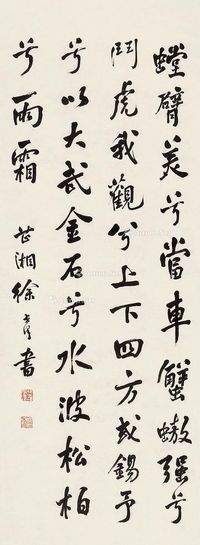 螳臂美兮當車蟹螯强兮
鬥虎我觀兮上下四方或錫予
兮以大武金石兮水波松柏
兮雨霜
芷湘徐書